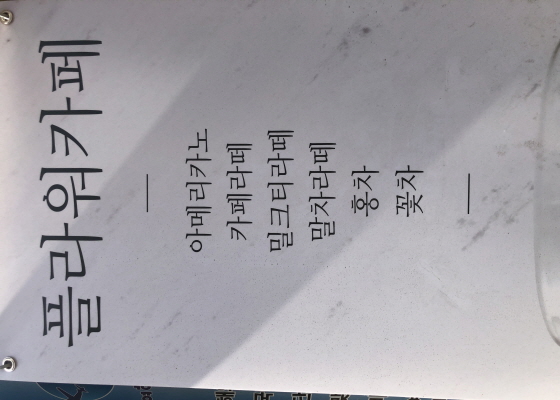 플라워카페
아메리카노
카페라떼
밀크티라떼
말차라떼
홍차
꽃차